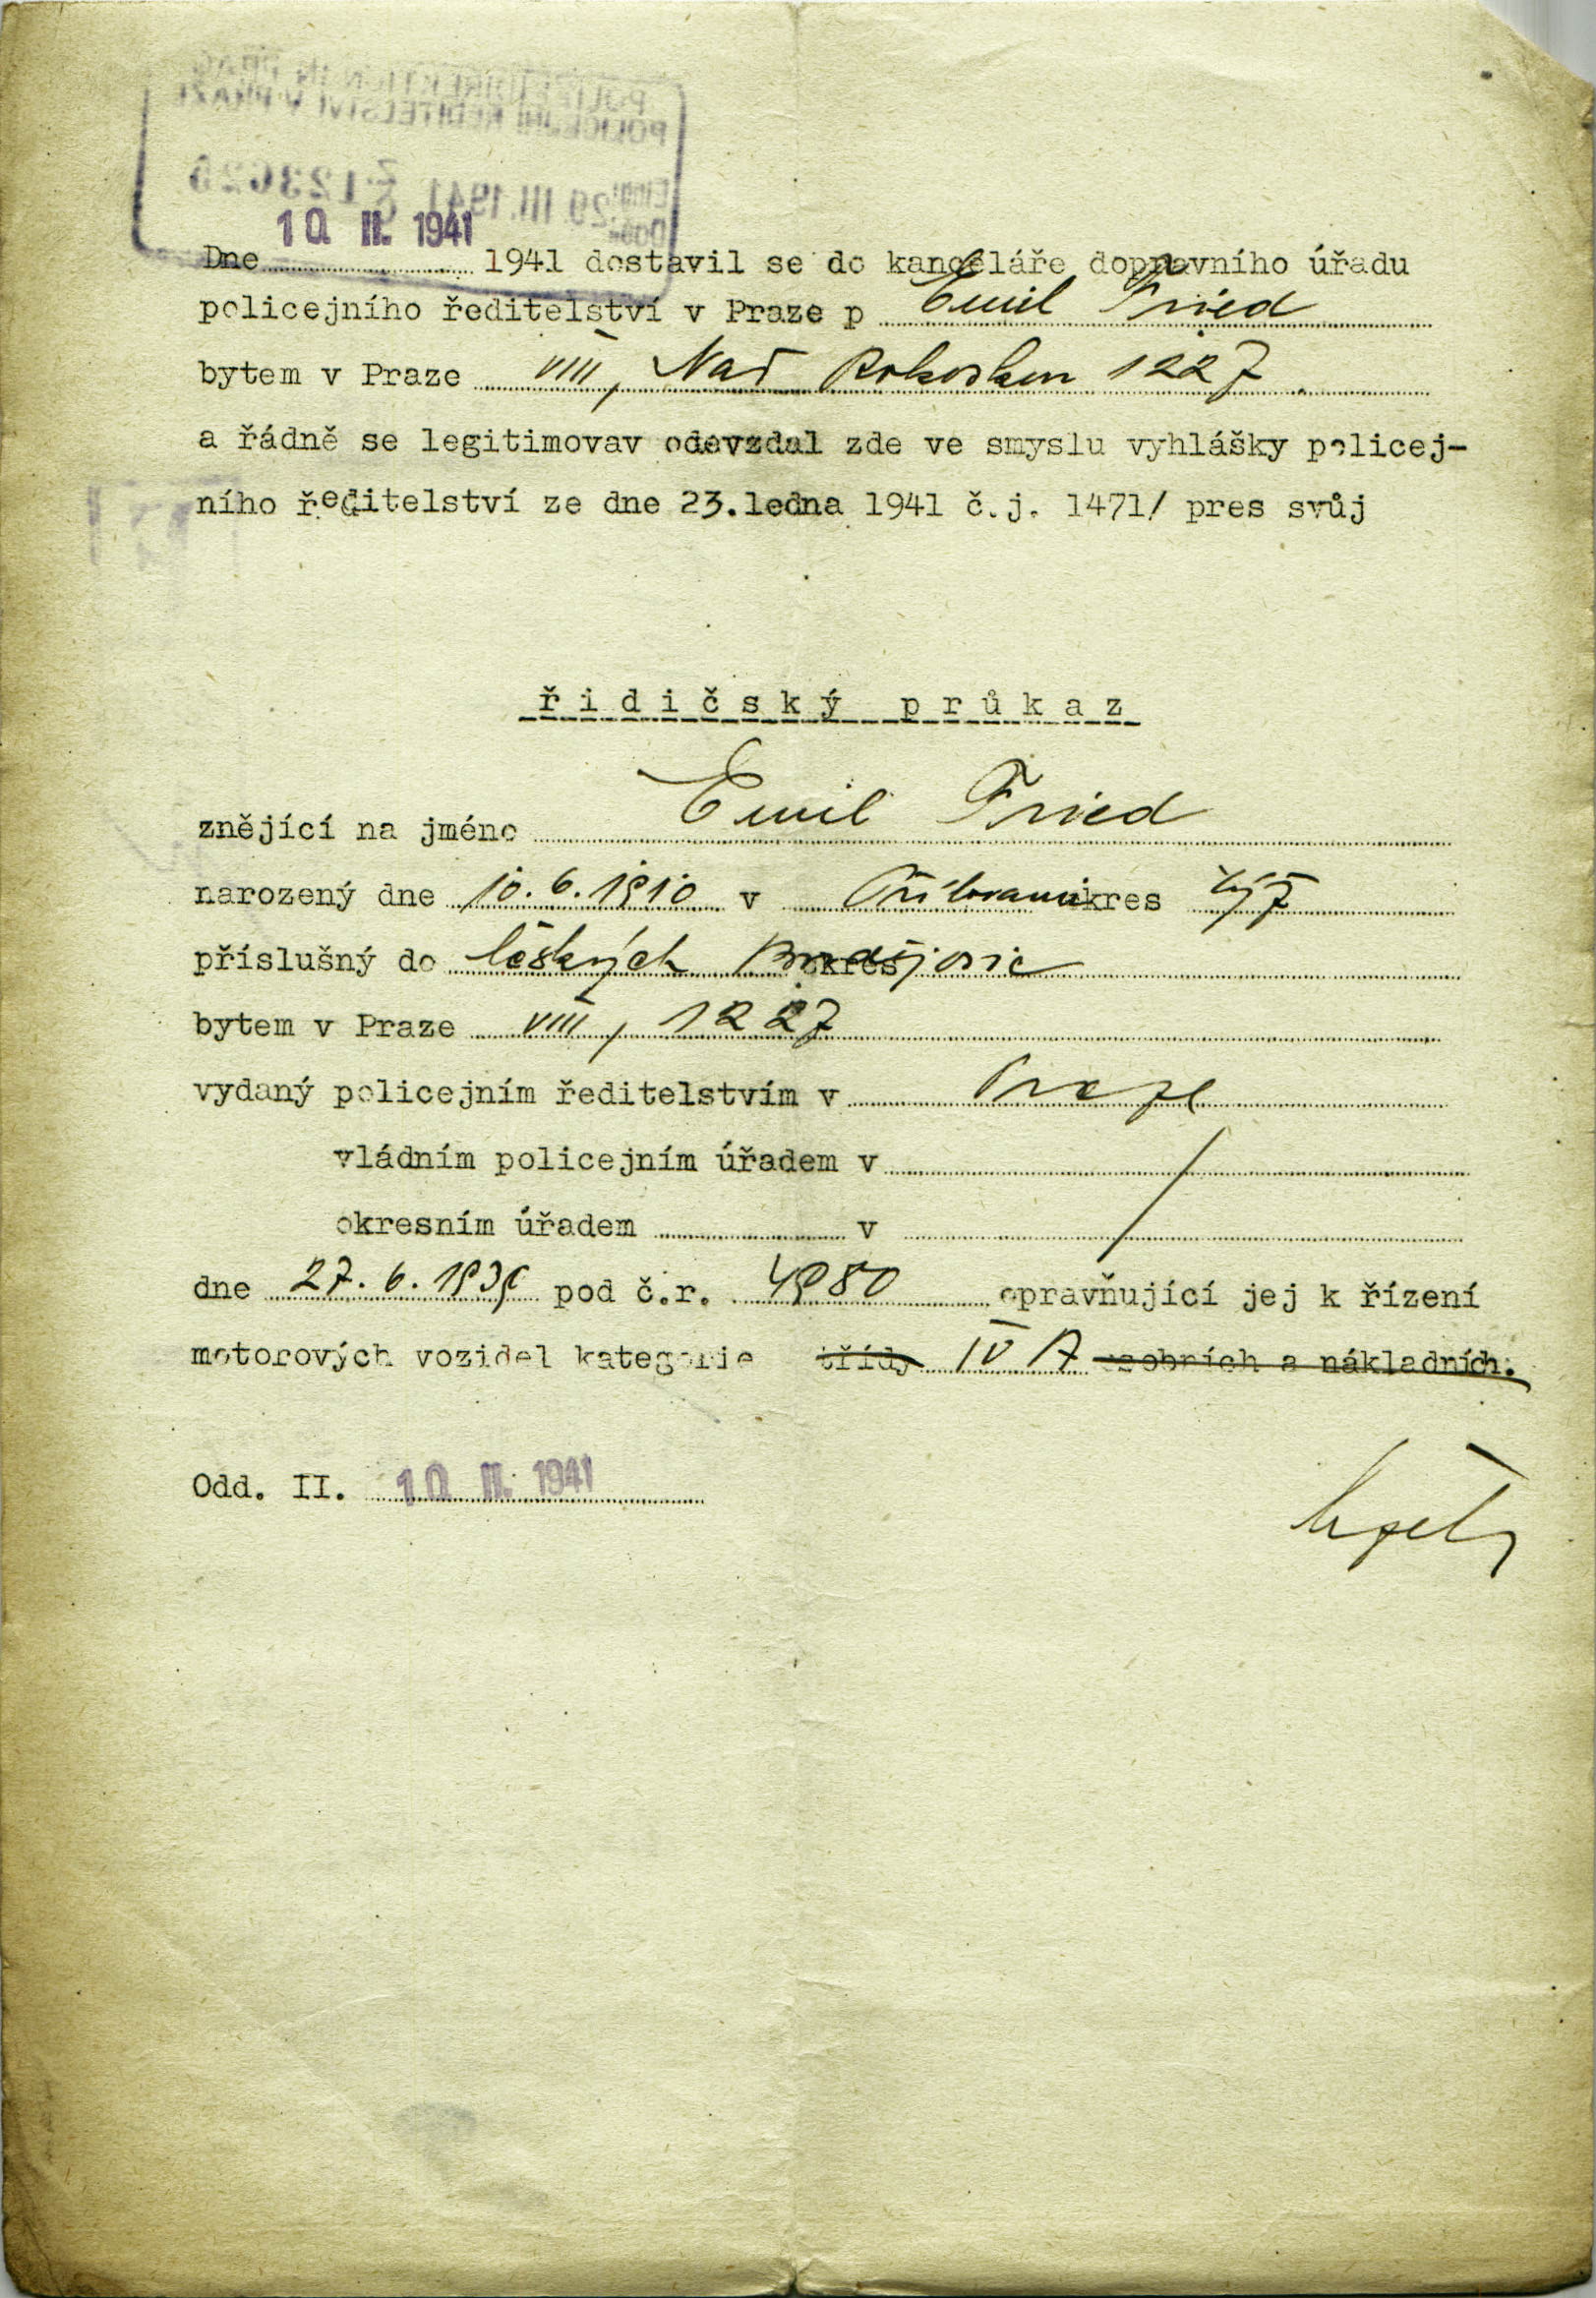 POLIZEIDIREKTION IN PRAG
POLICEJNÍ ŘEDITELSTVÍ V PRAZE
29 III. 1941
10 II. 1941
Dne 1941 dostavil se do kanceláře dopravního úřadu
policejního ředitelství v Praze p Emil Fried
bytem v Praze VIII, Nad Rokoskou 1227
a řádně se legitimovav odevzdal zde ve smyslu vyhlášky policej-
ního ředitelství ze dne 23.ledna 1941 č.j. 1471/ pres svůj
řidičský průkaz
znějící na jméno Emil Fried
narozený dne 10.6.1910 v Příbrami okres týž
příslušný do Českých Budějovic okres
bytem v Praze VIII, 1227
vydaný policejním ředitelstvím v Praze
vládním policejním úřadem v
okresním úřadem v
dne 27.6.1939 pod č.r. 4980 opravňující jej k řízení
motorových vozidel kategorie třídy IV A osobních a nákladních.
Odd. II. 10 II. 1941